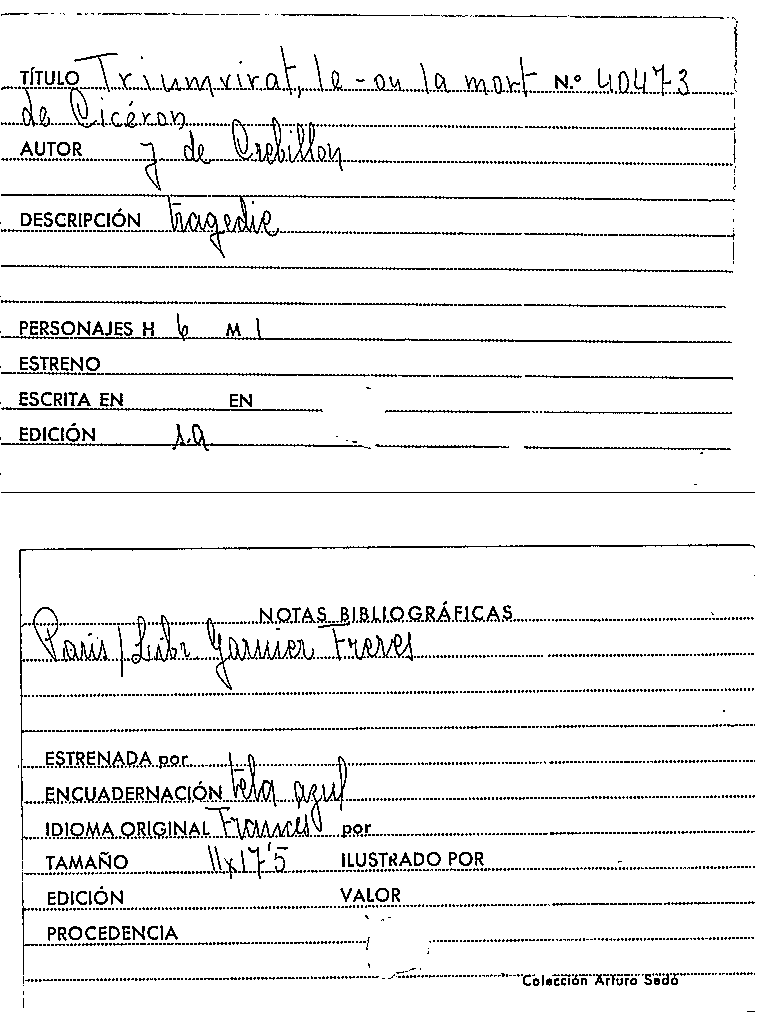 TÍTULO Triumvirat, le - ou la mort N.º 40473
de Cicéron
AUTOR J de Crebillon
DESCRIPCIÓN tragedie
PERSONAJES H 6 M 1
ESTRENO
ESCRITA EN EN
EDICIÓN s.a
NOTAS BIBLIOGRÁFICAS
Paris / Libr Garnier Freres
ESTRENADA por
ENCUADERNACIÓN tela azul
IDIOMA ORIGINAL Frances por
TAMAÑO 11x17'5 ILUSTRADO POR
EDICIÓN VALOR
PROCEDENCIA
Colección Arturo Sedó